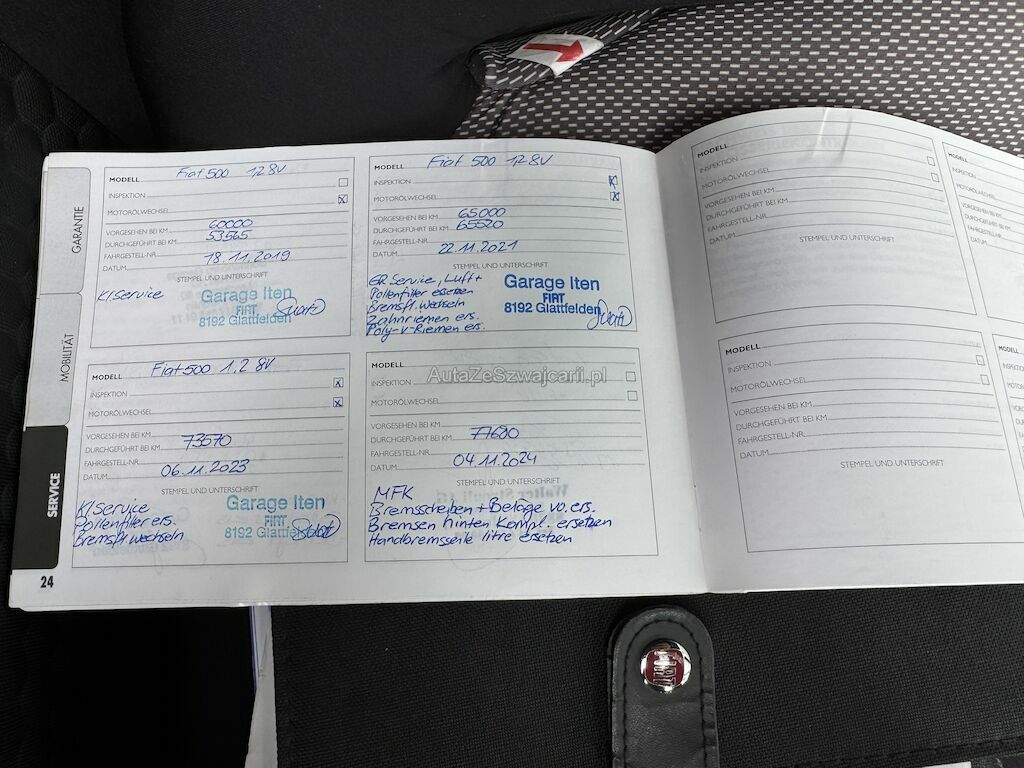 GARANTIE
MOBILITÄT
SERVICE
24
MODELL Fiat 500 1.2 8V
INSPEKTION
MOTORÖLWECHSEL x
VORGESEHEN BEI KM 60000
DURCHGEFÜHRT BEI KM 53565
FAHRGESTELL-NR.
DATUM 18.11.2019
STEMPEL UND UNTERSCHRIFT
Kl Service
Garage Iten
FIAT
8192 Glattfelden
MODELL Fiat 500 1.2 8V
INSPEKTION x
MOTORÖLWECHSEL x
VORGESEHEN BEI KM 65000
DURCHGEFÜHRT BEI KM 65520
FAHRGESTELL-NR.
DATUM 22.11.2021
STEMPEL UND UNTERSCHRIFT
GR Service, Luft +
Pollenfilter ersetzen
Bremsfl. wechseln
Zahnriemen ers.
Poly-V-Riemen ers.
Garage Iten
FIAT
8192 Glattfelden
MODELL Fiat 500 1.2 8V
INSPEKTION x
MOTORÖLWECHSEL x
VORGESEHEN BEI KM
DURCHGEFÜHRT BEI KM 73570
FAHRGESTELL-NR.
DATUM 06.11.2023
STEMPEL UND UNTERSCHRIFT
Kl Service
Pollenfilter ers.
Bremsfl wechseln
Garage Iten
FIAT
8192 Glattfelden
MODELL
INSPEKTION
MOTORÖLWECHSEL
VORGESEHEN BEI KM
DURCHGEFÜHRT BEI KM 77680
FAHRGESTELL-NR.
DATUM 04.11.2024
STEMPEL UND UNTERSCHRIFT
MFK
Bremsscheiben + Beläge vo. ers.
Bremsen hinten kompl. ersetzen
Handbremsseile li+re ersetzen
AutaZeSzwajcarii.pl
MODELL
INSPEKTION
MOTORÖLWECHSEL
VORGESEHEN BEI KM
DURCHGEFÜHRT BEI KM
FAHRGESTELL-NR.
DATUM
STEMPEL UND UNTERSCHRIFT
MODELL
INSPEKTION
MOTORÖLWECHSEL
VORGESEHEN BEI KM
DURCHGEFÜHRT BEI KM
FAHRGESTELL-NR.
DATUM
STEMPEL UND UNTERSCHRIFT